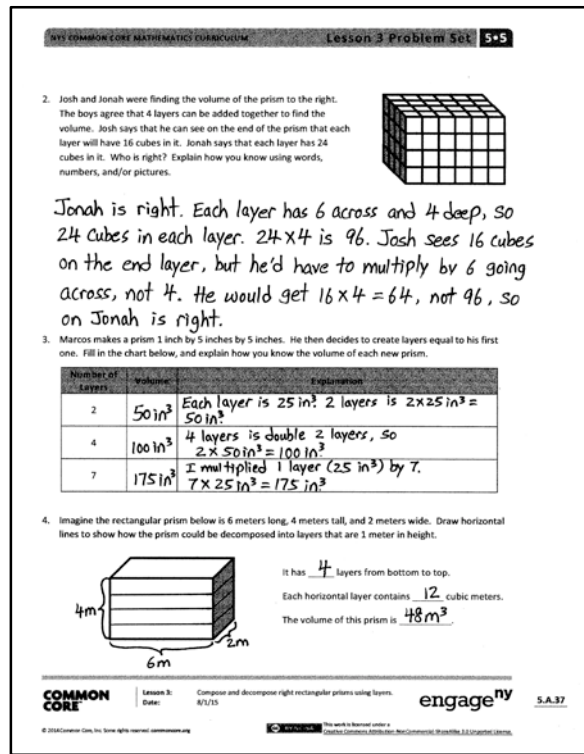 NYS COMMON CORE MATHEMATICS CURRICULUM
Lesson 3 Problem Set 5•5
2. Josh and Jonah were finding the volume of the prism to the right.
The boys agree that 4 layers can be added together to find the
volume. Josh says that he can see on the end of the prism that each
layer will have 16 cubes in it. Jonah says that each layer has 24
cubes in it. Who is right? Explain how you know using words,
numbers, and/or pictures.
Jonah is right. Each layer has 6 across and 4 deep, so
24 cubes in each layer. 24 x 4 is 96. Josh sees 16 cubes
on the end layer, but he'd have to multiply by 6 going
across, not 4. He would get 16 x 4 = 64, not 96, so
on Jonah is right.
3. Marcos makes a prism 1 inch by 5 inches by 5 inches. He then decides to create layers equal to his first
one. Fill in the chart below, and explain how you know the volume of each new prism.
Number of
Layers
Volume
Explanation
2
50 in³
Each layer is 25 in³. 2 layers is 2x25 in³ =
50 in³.
4
100 in³
4 layers is double 2 layers, so
2 x 50 in³ = 100 in³
7
175 in³
I multiplied 1 layer (25 in³) by 7.
7 x 25 in³ = 175 in³
4. Imagine the rectangular prism below is 6 meters long, 4 meters tall, and 2 meters wide. Draw horizontal
lines to show how the prism could be decomposed into layers that are 1 meter in height.
It has 4 layers from bottom to top.
Each horizontal layer contains 12 cubic meters.
The volume of this prism is 48 m³.
4m
2m
6m
COMMON
CORE
Lesson 3: Compose and decompose right rectangular prisms using layers.
Date: 8/1/15
engage ny
5.A.37
© 2014 Common Core, Inc. Some rights reserved. commoncore.org
This work is licensed under a
Creative Commons Attribution-NonCommercial-ShareAlike 3.0 Unported License.